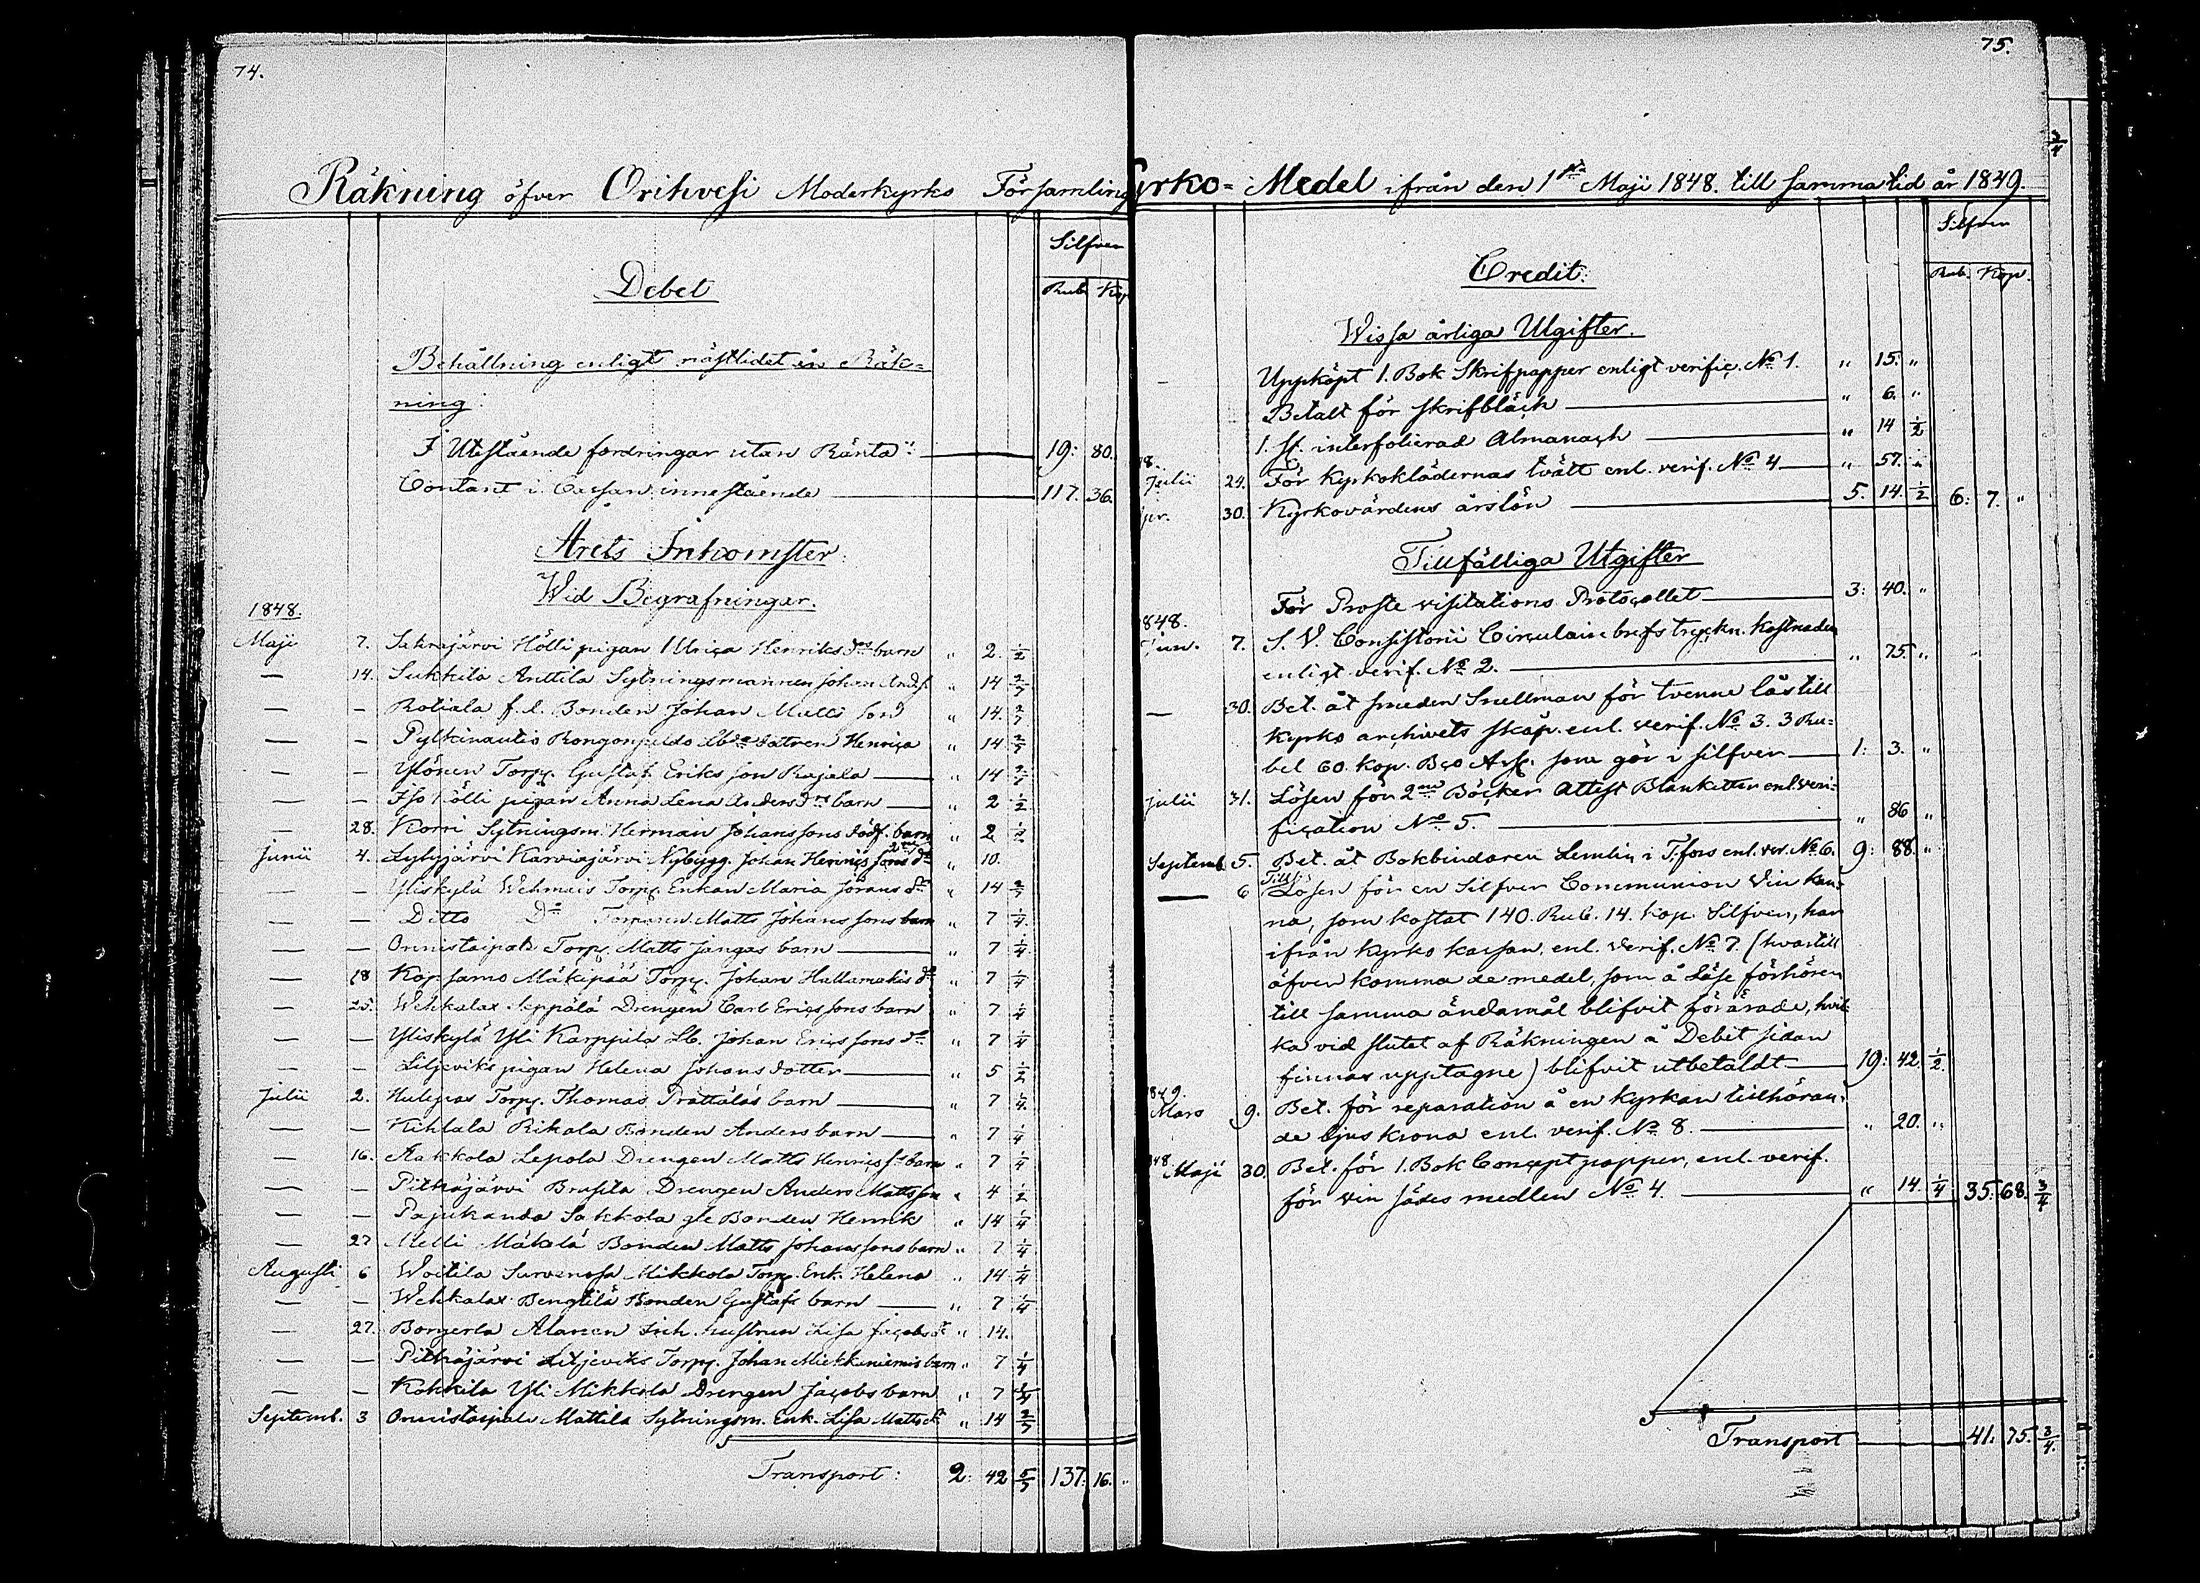 74.
Räkning öfver Orihvesi Moderkyrko Församling
Silfver
Debet
Rub. Kop
Behållning enligt nästlidet års Räk=
ning:
I Utestående fordringar utan Ränta " 19: 80.
Contant i Cassan innestående 117. 36.
Årets Inkomster.
Wid Begrafningar.
1848.
Maji 7. Sakrajärvi Hölli pigan Ulrica Henriksdrs barn " 2. 1/2
— 14. Sukkila Anttila Sytningsmannen Johan Andss. " 14 2/7
— — Rotiala f.d. Bonden Johan Matts son " 14. 2/7
— — Pylkinautio dottren Henrica " 14 2/7
— — Ylönen Torp. Gustaf Eriks son Rajala " 14 2/7
— — Iso Hölli pigan Anna Lena Andersdrs barn " 2 1/2
— 28. Korri Sytningsm. Herman Johanssons dödf. barn " 2 1/2
Junii 4. Lyhyjärvi Karviajärvi Nybygg. Johan Henricssons dr " 10.
— — Yliskylä Wehmais Torp. Enkan Maria Jörans dr " 14 2/7
— — Ditto Do Torparen Matts Johans sons barn " 7 1/4
— — Onnistaipale Torp. Matts Jangas barn " 7 1/4
— 18 Kopsamo Mäkipää Torp. Johan Hallamäkis dr " 7 1/4
— 25. Wehkalax Seppälä Drengen Carl Ericssons barn " 7 1/4
— — Yliskylä Yli Karppila Lb. Johan Ericssons dr " 7 1/4
— — Liljeviks pigan Helena Johans dotter " 5 1/2
Julii 2. Torp. Thomas Prättäläs barn " 7 1/4.
— — Kihlala Rikala Bonden Anders barn " 7 1/4
— 16. Aakkola Lepola Drengen Matts Henricss. barn " 7 1/4
— — Pitkäjärvi Brusila Drengen Anders Mattsson " 4 1/2
— — Pajukanda Sakkola gle Bonden Henrik " 14 1/4
— 27 Melli Mäkelä Bonden Matts Johanssons barn " 7 1/4
Augusti 6 Woitila Survanosa Mikkola Torp. Enk. Helena " 14 1/4
— — Wehkalax Bengtilä Bonden Gustafs barn " 7 1/4
— 27. Alanen hustrun Lisa Jacobs dr " 14.
— — Pitkäjärvi Liljeviks Torp. Johan Miekkaniemis barn " 7 1/4
— — Kokkila Yli Mikkola Drengen Jacobs barn " 7 1/4
Septemb. 3 Onnistaipale Mattila Sytningsm. Enk. Lisa Matts dr " 14 2/7
Transport: 2: 42 5/7 137: 16. "
75.
yrko= Medel ifrån den 1sta Maji 1848. till samma tid år 1849.
Silfver
Credit:
Rub. Kop.
Wissa årliga Utgifter.
Uppköpt 1. Bok Skrifpapper enligt verific. No 1. " 15: "
Betalt för skrifbläck " 6. "
1. st. interfolierad Almanach " 14 1/2
8.
Julii 24. För Kyrkoklädernas tvätt enl. verif. No 4 " 57. "
pr. 30. Kyrkovärdens årslön 5. 14. 1/2 6: 7. "
Tillfälliga Utgifter
För Proste visitations Protocollet 3: 40. "
848.
Jun. 7. S. V. Consistorii Circulairebrefs tryckn. kostnaden
enligt verif. No 2. " 75. "
— 30. Bet. åt smeden Snellman för tvenne lås till
kyrko archivets skåp. enl. verif. No 3. 3 Ru=
bel 60. Kop. Bco Ass. som gör i silfver 1: 3. "
Julii 31. Lösen för 2ne Böcker Attest Blanketter enl. veri=
fication No 5. " 86 "
Septemb. 5. Bet. åt Bokbindaren Lemlin i T:fors enl. ver. No 6. 9: 88. "
— 6 Till
Lösen för en Silfver Communion Vin kan=
na, som kostat 140. Rub. 14. Kop. Silfver, har
ifrån Kyrko kassan, enl. verif. No 7. (hvartill
äfven komma de medel, som å Läse förhören
till samma ändamål blifvit förärade, hvil
ka vid slutet af Räkningen å Debet sidan
finnas upptagne) blifvit utbetaldt 19: 42. 1/2.
849.
Mars 9. Bet. för reparation å en Kyrkan tillhöran=
de ljuskrona enl. verif. No 8. " 20. "
848
Maji 30. Bet. för 1. Bok Conceptpapper, enl. verif.
för vin sädes medlen No 4. " 14. 1/4 35. 68. 3/4
Transport 41. 75. 3/4.
3/4